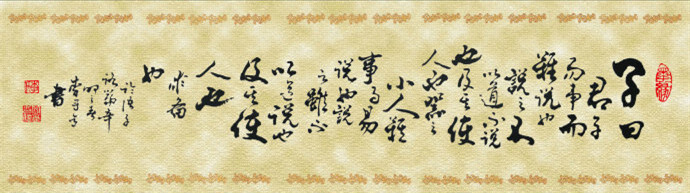 子曰
君子
易事而
難说也
説之不
以道不说
也及其使
人也器之
小人難
事而易
説也説
之雖不
以道説也
及其使
人也
書